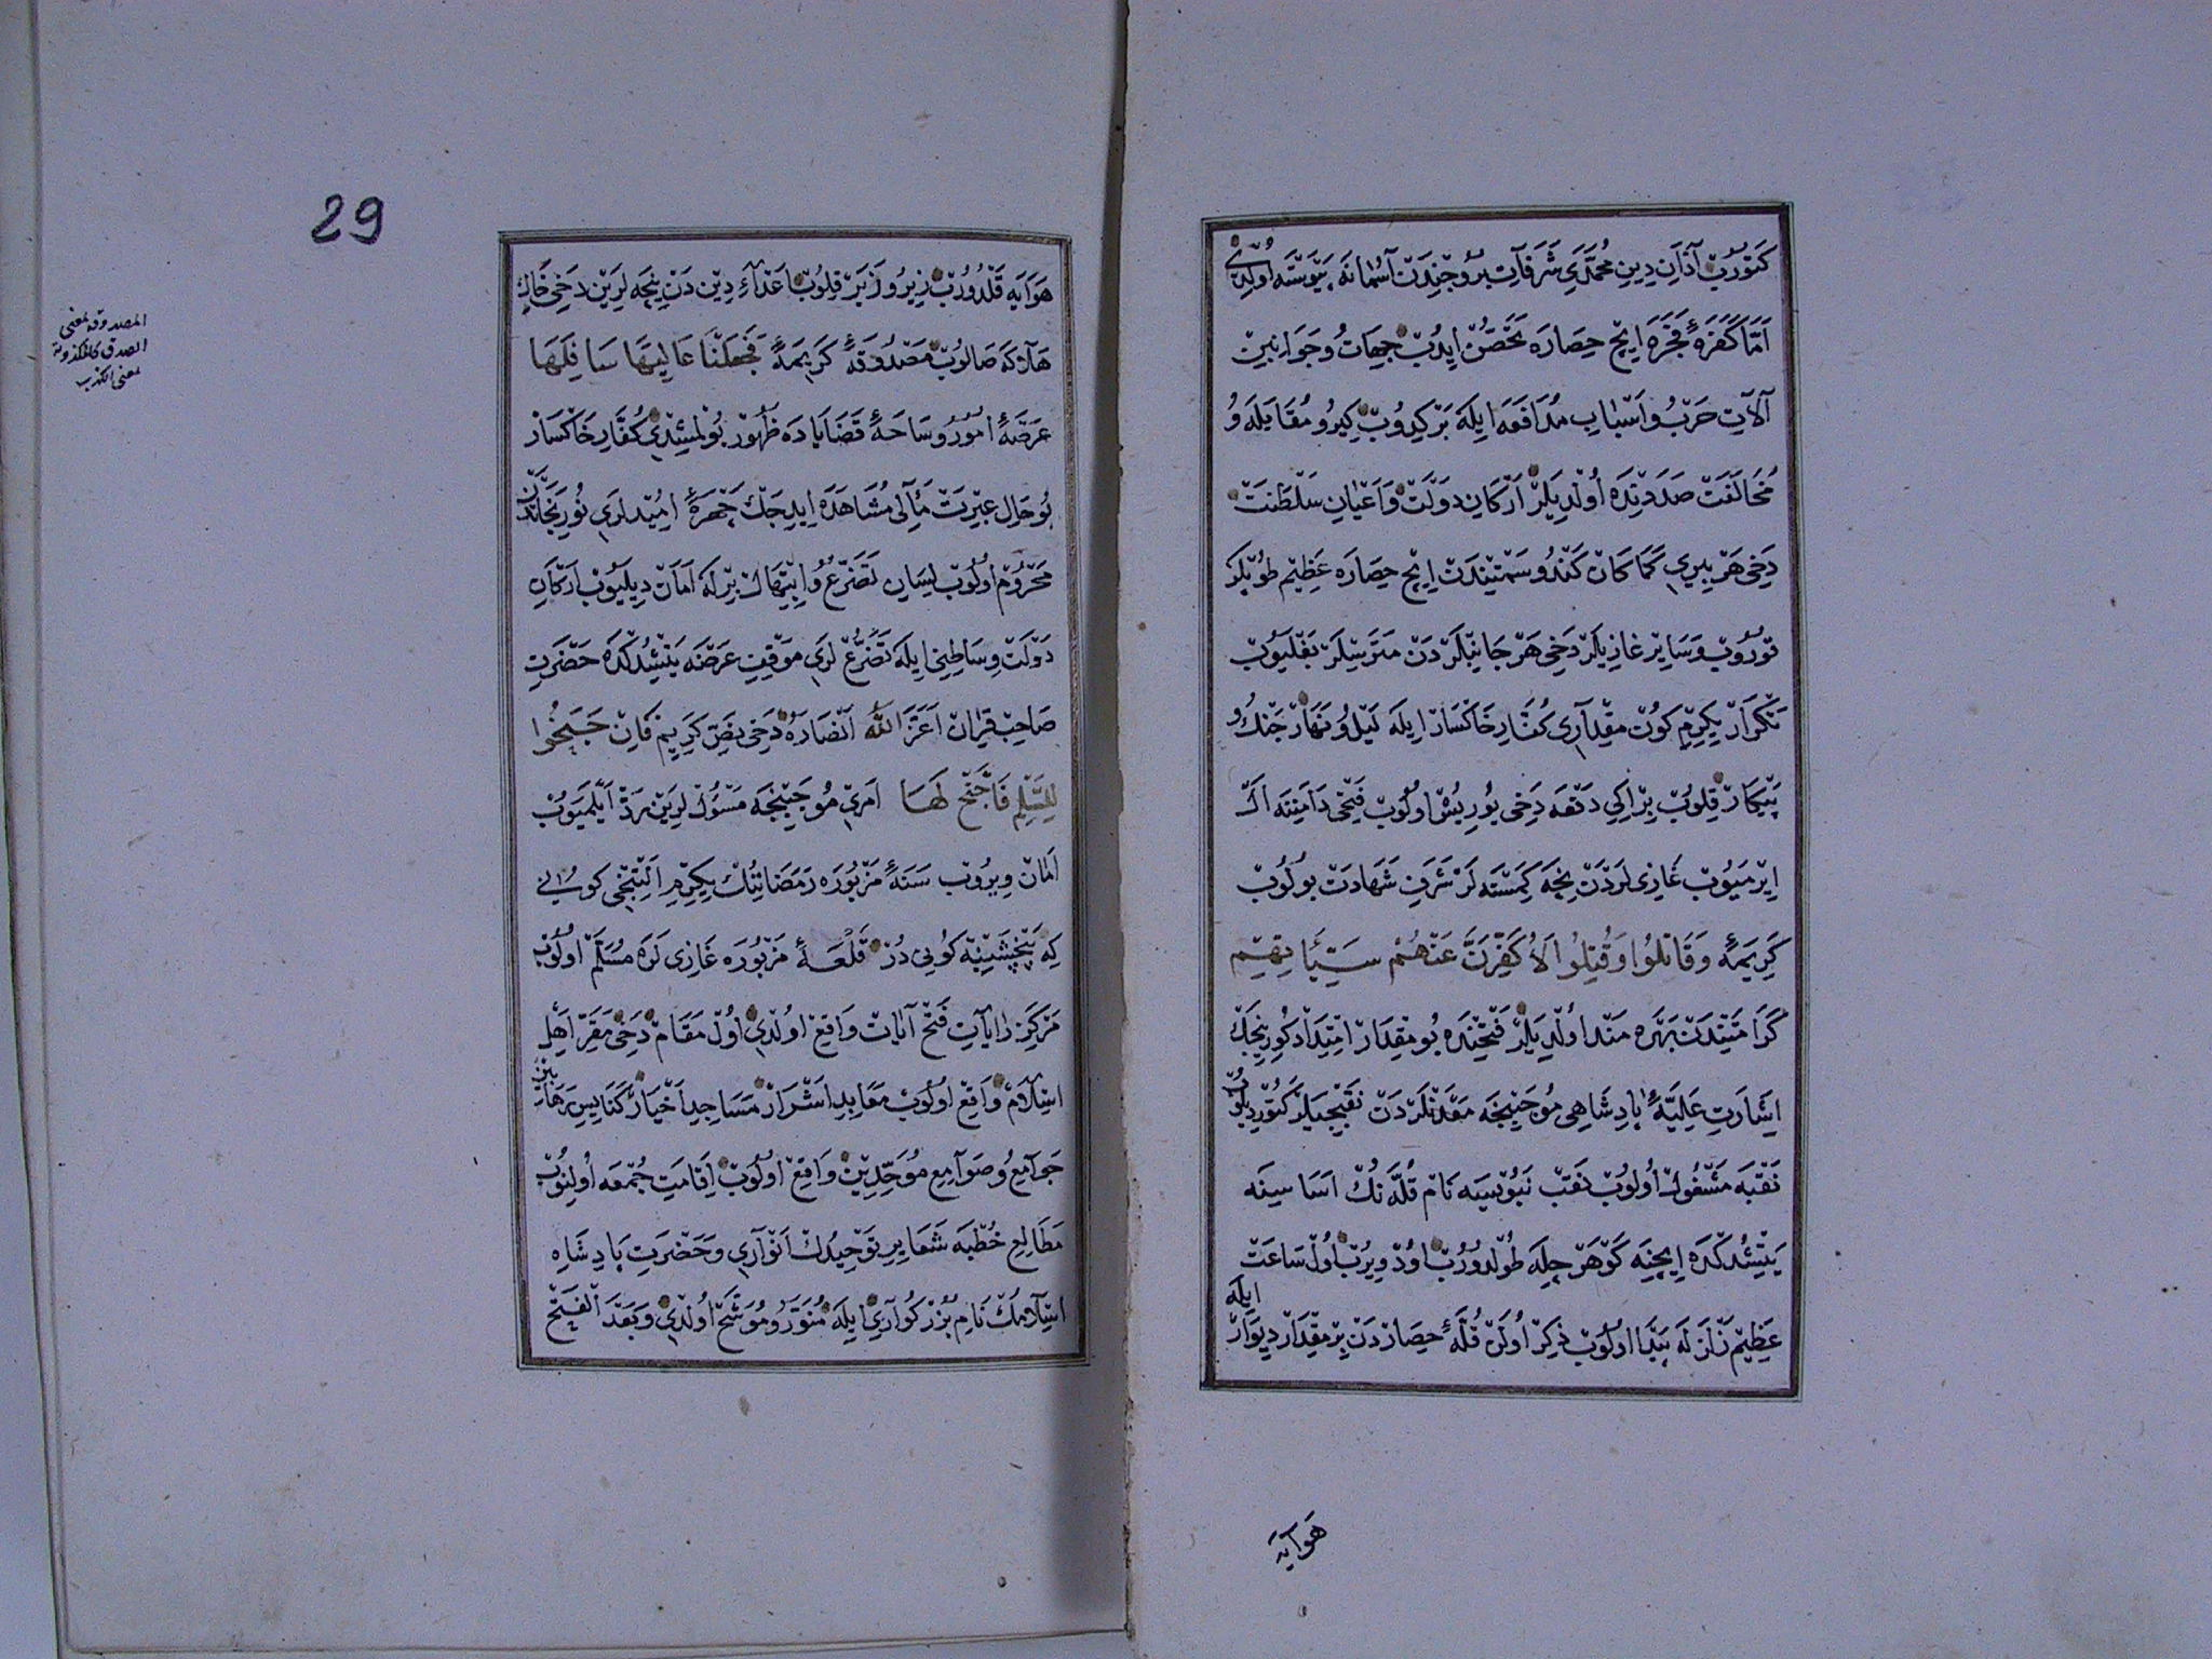 كتوروب آذان دين محمدي شرفات بروجندن آسمانه پيوسته اولدى
اما كفرهٔ فجره ايچ حصاره تحصن ايدوب جهات و جوانبين
آلات حرب و اسباب مدافعه ايله بركيدوب كيرو مقابله و
مخالفت صددنده اولديلر اركان دولت و اعيان سلطنت
دخى هر بيرى كما كان كندو سمتيندن ايچ حصاره عظيم طوپلر
قوروب و ساير غازيلر دخى هر جانبلردن متريسلر بغليوب
تكرار يكرمى كون مقدارى كفار خاكسار ايله ليل و نهار جنك و
پيكار قلوب بر ايكى دفعه دخى يوريش اولوب فتحى دامننه ال
ايرميوب غازى لردن نيجه كمسنه لر شرف شهادت بولوب
كريمهٔ وَقَاتَلُوا وَقُتِلُوا لَأُكَفِّرَنَّ عَنْهُمْ سَيِّئَاتِهِمْ
كرامتيندن بهره مند اولديلر فتحينده بو مقدار امتداد كورينجك
اشارت عليهٔ پادشاهى موجبنجه معدنلردن نقبجيلر كتورديلوب
نقبه مشغول اولوب نقب نبويسيه نام قله نك اساسينه
يتيشدكده ايچنه كوهرجله طولدوروب اود ويروب اول ساعت
عظيم زلزله پيدا اولوب ذكر اولن قلهٔ حصاردن بر مقدار ديوار ايله
هوايه
29
هوايه قلدوروب زير و زبر قلوب اعداء دين دن نيجه لرين دخى خاك
هلاكه صالوب مصدوقهٔ كريمهٔ فَجَعَلْنَا عَالِيَهَا سَافِلَهَا
عرصهٔ امور و ساحهٔ قضاياده ظهور بولمشدى كفار خاكسار
بو حال عبرت مآلى مشاهده ايديجك چهرهٔ اميدلرى نور نجاتدن
محروم اولوب لسان تضرع و ابتهال برله امان ديليوب اركان
دولت وساطتى ايله تضرع لرى موقف عرضه يتيشدكده حضرت
صاحب قران اعز الله انصاره دخى نص كريم فَاِنْ جَنَحُوا
لِلسَّلْمِ فَاجْنَحْ لَهَا امرى موجبنجه مسؤل لرين رد ايلميوب
امان ويروب سنهٔ مزبوره رمضانينك يكرمى التنجى كونى
كه پنجشنبه كونى در قلعهٔ مزبوره غازى لره مسلم اولوب
مركز رايات فتح آيات واقع اولدى اول مقام دخى مقر اهل
اسلام واقع اولوب معابد اشرار مساجد اخيار كنايس رهابين
جوامع و صوامع موحدين واقع اولوب اقامت جمعه اولنوب
مطالع خطبه شعاير توحيدك انوارى و حضرت پادشاه
اسلامك نام بزركوارى ايله منور و موشح اولدى و بعد الفتح
المصدوقه بمعنى
الصدق كالمكذوبة
بمعنى الكذب